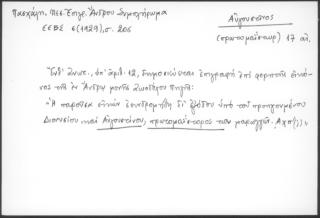 Πασχάλη, Μεσ. Ἐπιγρ. Ἄνδρου Συμπλήρωμα
ΕΕΒΣ 6 (1929), σ. 206
Αὐγουστῖνος
(πρωτομαΐστωρ) 17 αἰ.
Ἔνθ' ἀνωτ., ὑπ' ἀριθ. 12, δημοσιεύεται ἐπιγραφὴ ἐπὶ φορητῆς εἰκό-
νος τῆς ἐν Ἄνδρῳ μονῆς Ζωοδόχου Πηγῆς:
«Ἡ παροῦσα εἰκὼν δι' ἐξόδου ὑπὸ τοῦ προηγουμένου
Διονυσίου καὶ Αὐγουστίνου, πρωτομαΐστορος τῶν μαραγγῶν. Αχπ